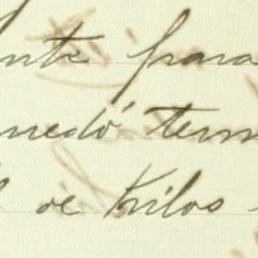 nte para
uedó term
l de Kilos